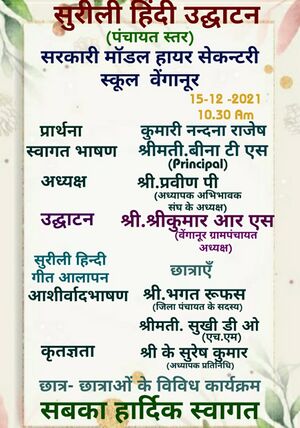 सुरीली हिंदी उद्घाटन
(पंचायत स्तर)
सरकारी मॉडल हायर सेकन्टरी
स्कूल वेंगानूर
15-12 -2021
10.30 Am
प्रार्थना कुमारी नन्दना राजेष
स्वागत भाषण श्रीमती.बीना टी एस
(Principal)
अध्यक्ष श्री.प्रवीण पी
(अध्यापक अभिभावक
संघ के अध्यक्ष)
उद्घाटन श्री.श्रीकुमार आर एस
(वेंगानूर ग्रामपंचायत
अध्यक्ष)
सुरीली हिन्दी
गीत आलापन छात्राएँ
आशीर्वादभाषण श्री.भगत रूफस
(जिला पंचायत के सदस्य)
श्रीमती. सुखी डी ओ
(एच.एम)
कृतज्ञता श्री के सुरेष कुमार
(अध्यापक प्रतिनिधि)
छात्र- छात्राओं के विविध कार्यक्रम
सबका हार्दिक स्वागत